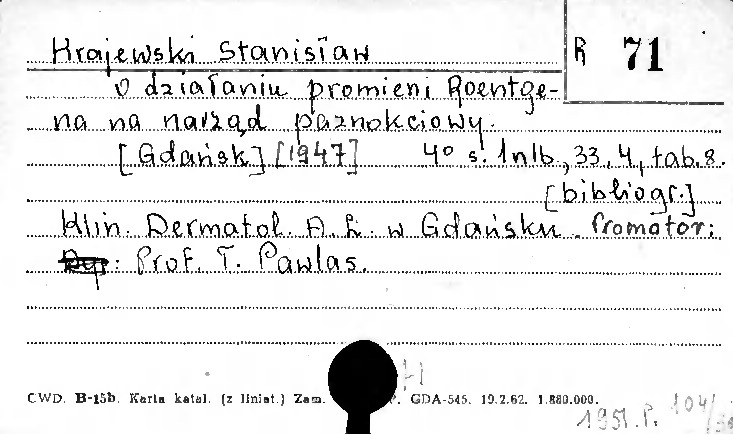 Krajewski Stanisław
R 71
O działaniu promieni Roentge-
na na narząd paznokciowy.
[Gdańsk] [1947] 4° s. 1 nlb., 33, 4, tab. 8.
[bibliogr.]
Klin. Dermatol. A. L. w Gdańsku. Promotor:
Dyr: Prof. T. Pawlas.
CWD. B-15b. Karta katal. (z liniat.) Zam. GDA-545. 19.2.62. 1.880.000.
1951.P. 104/